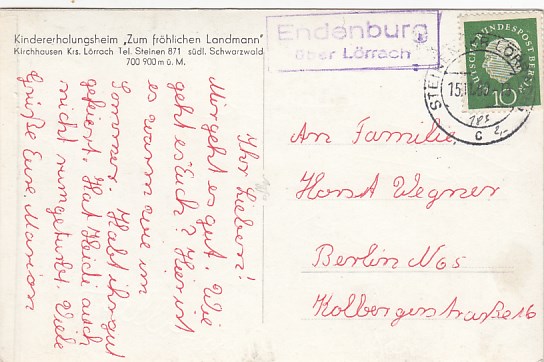 Kindererholungsheim „Zum fröhlichen Landmann"
Kirchhausen Krs. Lörrach Tel. Steinen 871 südl. Schwarzwald
700 900 m ü. M.
Endenburg
über Lörrach
DEUTSCHE BUNDESPOST BERLIN
10
STEINEN
LÖRR
15
c
Ihr Lieben!
Mir geht es gut. Wie
geht es Euch? Hier ist
es warm wie im
Sommer. Habt ihr gut
gefeiert. Hat Heidi auch
nicht rumgeturbt. Viele
Grüße Eure Marion
An Familie
Horst Wegner
Berlin N65
Kolbergerstraße 16